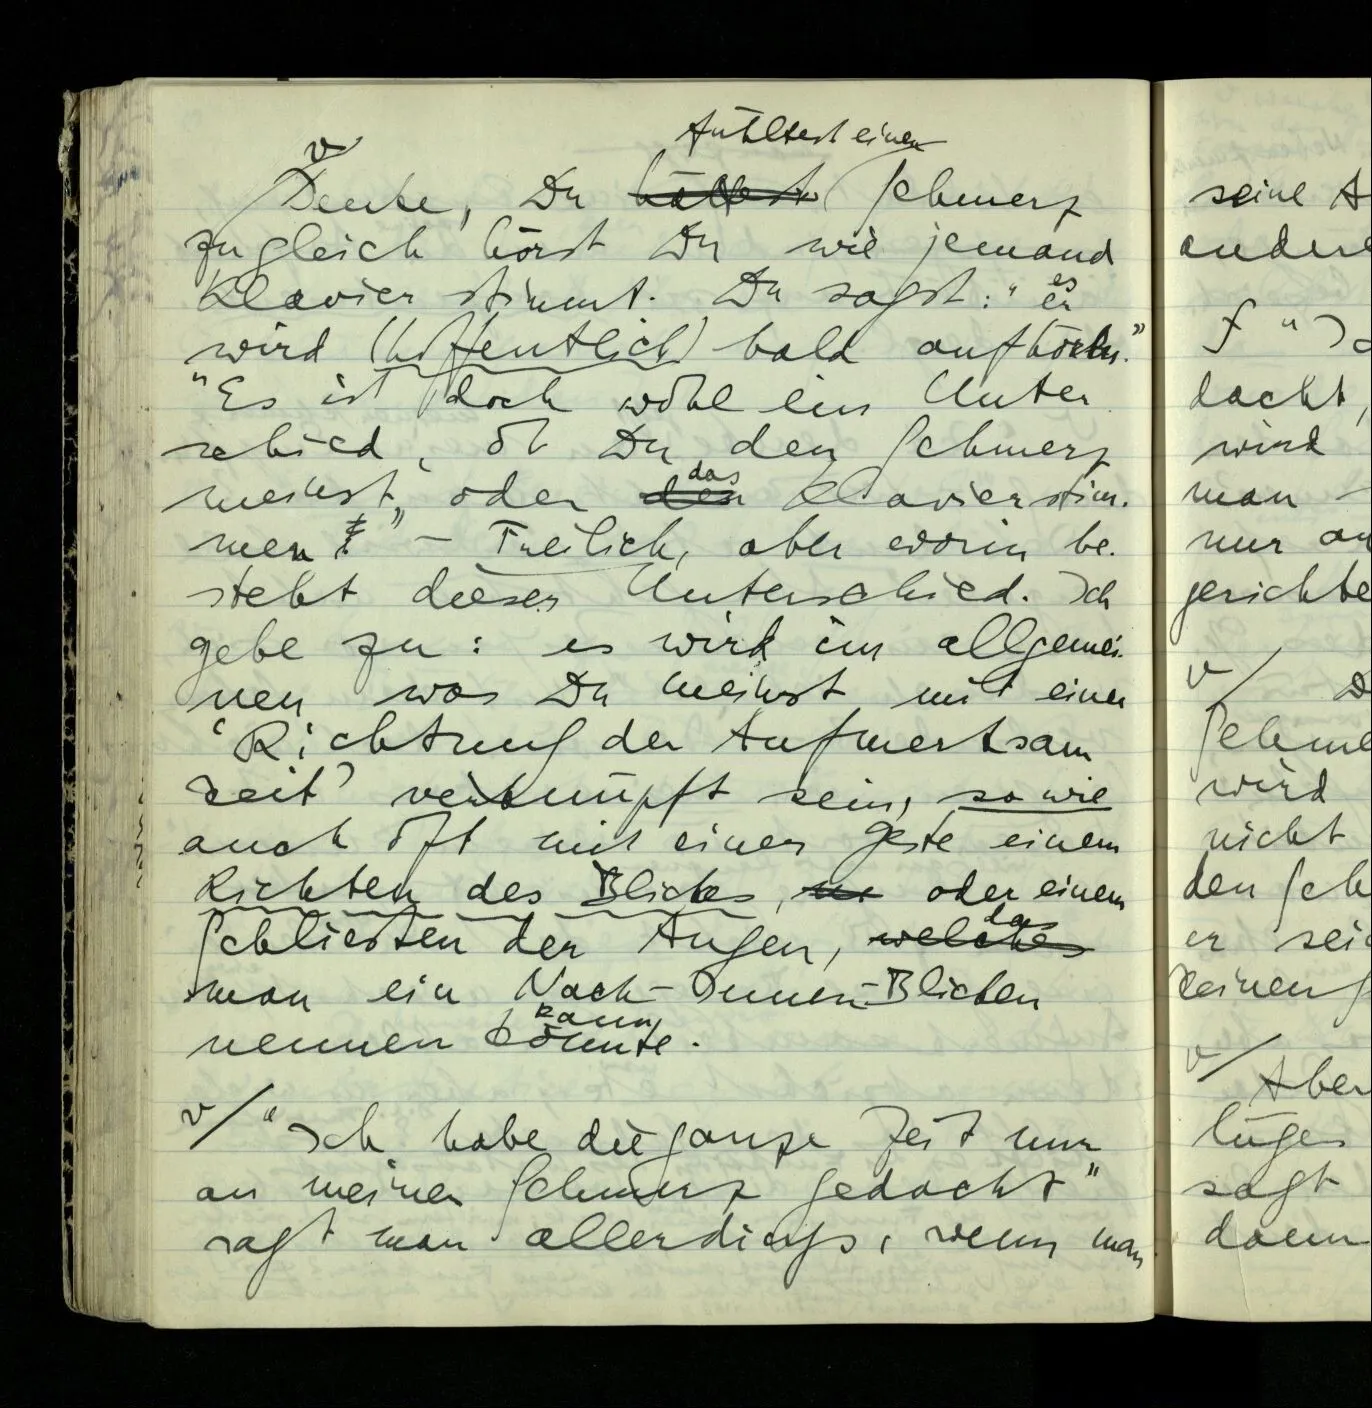 v
fühltest einen
Denke, Du hättest Schmerz
zugleich hörst Du wie jemand
Klavier stimmt. Du sagst: "er es
wird (hoffentlich) bald aufhören."
"Es ist doch wohl ein Unter
schied, ob Du den Schmerz
meinst, oder den das Klavierstim-
men?" – Freilich, aber worin be-
steht dieser Unterschied. Ich
gebe zu: es wird im allgemei-
nen was Du meinst mit einer
'Richtung der Aufmerksam
keit' verknüpft sein, so wie
auch oft mit einer Geste einem
Richten des Blickes, oder einem
Schließen der Augen, welches das
man ein Nach-Innen-Blicken
nennen könnte kann.
v/ "Ich habe die ganze Zeit nur
an meinen Schmerz gedacht"
sagt man allerdings, wenn man
seine A
andere
∫ "Ic
dacht,
wird
man
nur au
gerichte
v/ D
Schme
wird
nicht
den Sch
er sei
keinen
v/ Aber
lügen
sagt
dann